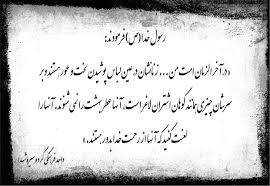 رسول خدا(ص) فرمودند:
«در آخرالزمان امت من... زنانشان در عین لباس پوشیدن لخت و عور هستند و بر
سرشان چیزی مانند کوهان اشتران لاغر است، آنها عطر بهشت را نمی شنوند، آنها را
لعنت کنید که آنها از رحمت خدا بدور هستند.»
واحد فرهنگی گروه سیره شهدا